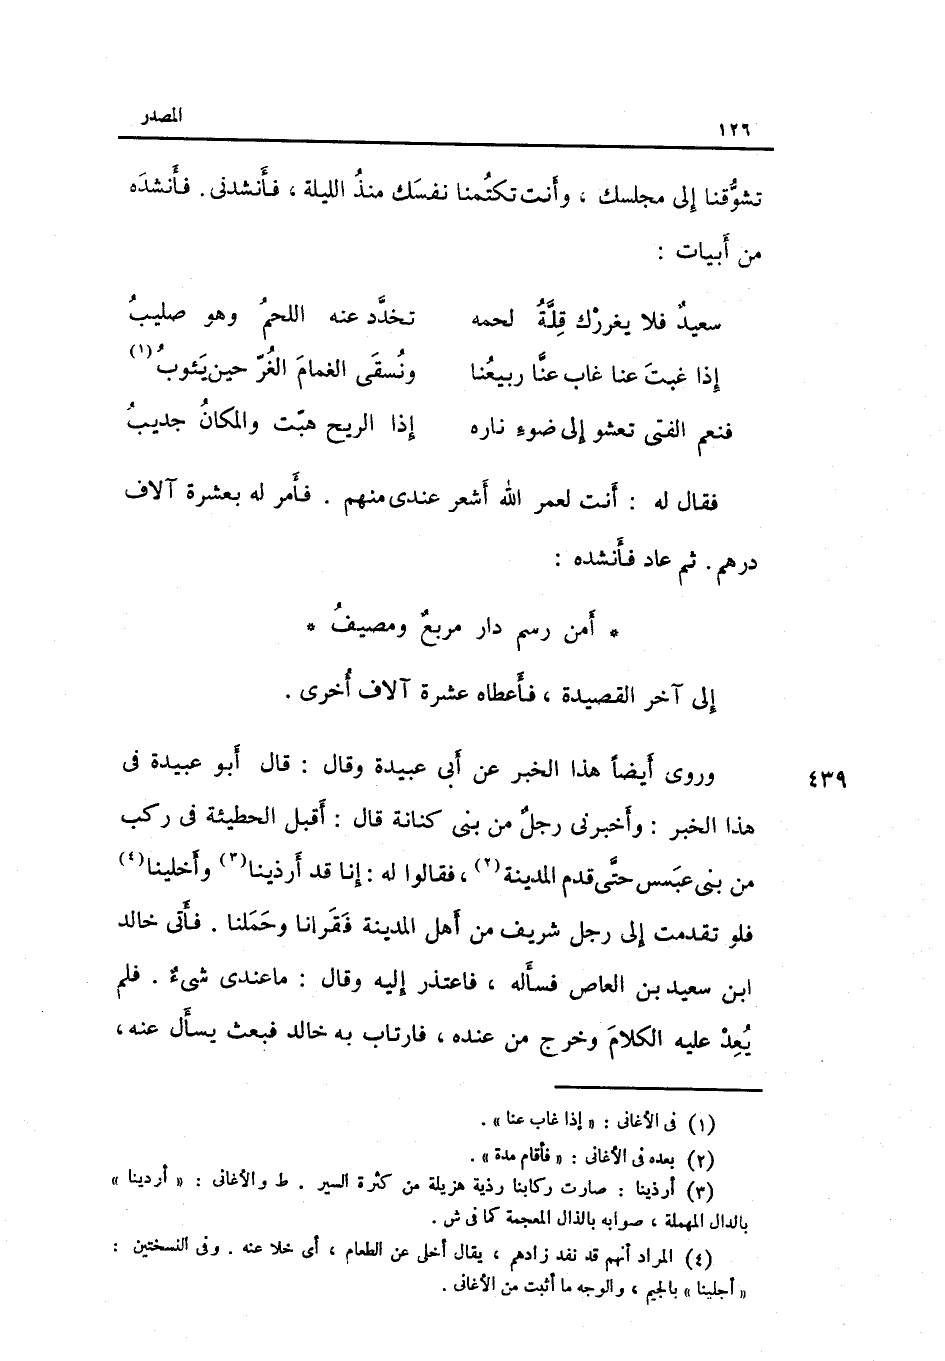 ١٢٦ المصدر
تشوُّقنا إلى مجلسك ، وأَنت تكتُمنا نفسَك منذُ الليلة ، فأَنشدنى . فأَنشدَه
من أَبيات :
سعيدٌ فلا يغررْك قِلَّةُ لحمه تخدَّد عنه اللحمُ وهو صليبُ
إذا غبتَ عنا غاب عنَّا ربيعُنا ونُسقَى الغمامَ الغُرّ حين يَئوبُ (١)
فنعم الفتى تعشو إلى ضوءِ ناره إذا الريح هبّت والمكانُ جديبُ
فقال له : أَنت لعمر الله أَشعر عندى منهم . فأَمر له بعشرة آلاف
درهم . ثم عاد فأَنشده :
* أَمن رسم دار مربعٌ ومصيفُ *
إلى آخر القصيدة ، فأَعطاه عشرة آلاف أُخرى .
وروى أَيضاً هذا الخبر عن أَبى عبيدة وقال : قال أَبو عبيدة فى ٤٣٩
هذا الخبر : وأَخبرنى رجلٌ من بنى كنانة قال : أَقبل الحطيئة فى ركب
من بنى عبَسس حتَّى قدم المدينة (٢) ، فقالوا له : إنا قد أَرذينا (٣) وأَخلينا (٤)
فلو تقدمت إلى رجل شريف من أَهل المدينة فَقَرانا وحَمَلنا . فأَتى خالد
ابن سعيد بن العاص فسأَله ، فاعتذر إليه وقال : ما عندى شىءٌ . فلم
يُعِدْ عليه الكلامَ وخرج من عنده ، فارتاب به خالد فبعث يسأَل عنه ،
(١) فى الأغانى : « إذا غاب عنا » .
(٢) بعده فى الأغانى : « فأقام مدة » .
(٣) أرذينا : صارت ركابنا رذية هزيلة من كثرة السير . ط والأغانى : « أردينا »
بالدال المهملة ، صوابه بالذال المعجمة كما فى ش .
(٤) المراد أنهم قد نفد زادهم ، يقال أخلى عن الطعام ، أى خلا عنه . وفى النسختين :
« أجلينا » بالجيم ، والوجه ما أثبت من الأغانى .